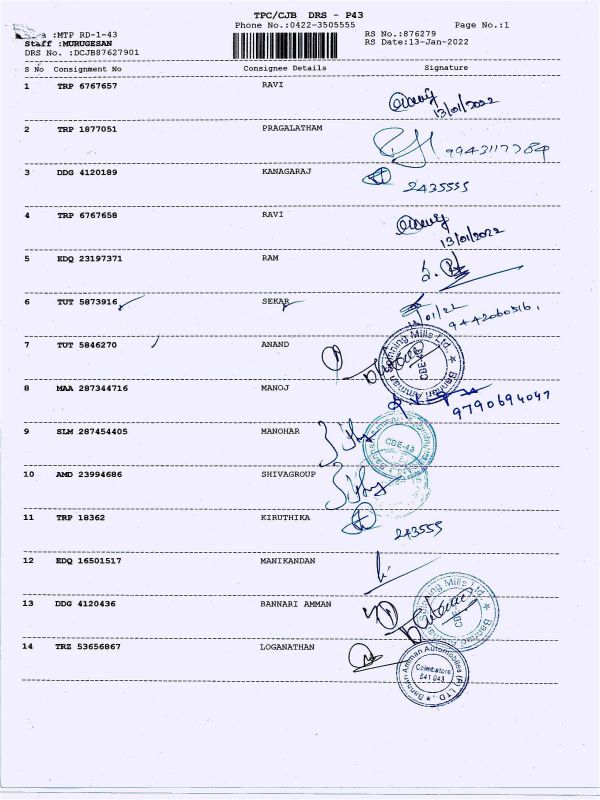 TPC/CJB DRS - P43
Phone No.:0422-3505555 Page No.:1
:MTP RD-1-43 RS No.:876279
Staff :MURUGESAN RS Date:13-Jan-2022
DRS No. :DCJB87627901
S No Consignment No Consignee Details Signature
1 TRP 6767657 RAVI
13/01/2022
2 TRP 1877051 PRAGALATHAM
9943117784
3 DDG 4120189 KANAGARAJ
2435555
4 TRP 6767658 RAVI
13/01/2022
5 EDQ 23197371 RAM
6 TUT 5873916 SEKAR
9442060516
7 TUT 5846270 ANAND
Bannari Amman Spinning Mills Ltd
CBE-43
8 MAA 287344716 MANOJ
9790694047
9 SLM 287454405 MANOHAR
CBE-43
10 AMD 23994686 SHIVAGROUP
11 TRP 18362 KIRUTHIKA
243555
12 EDQ 16501517 MANIKANDAN
13 DDG 4120436 BANNARI AMMAN
Bannari Amman Spinning Mills Ltd
CBE-43
14 TRZ 53656867 LOGANATHAN
Bannari Amman Automobiles (P) LTD.
Coimbatore
641 043